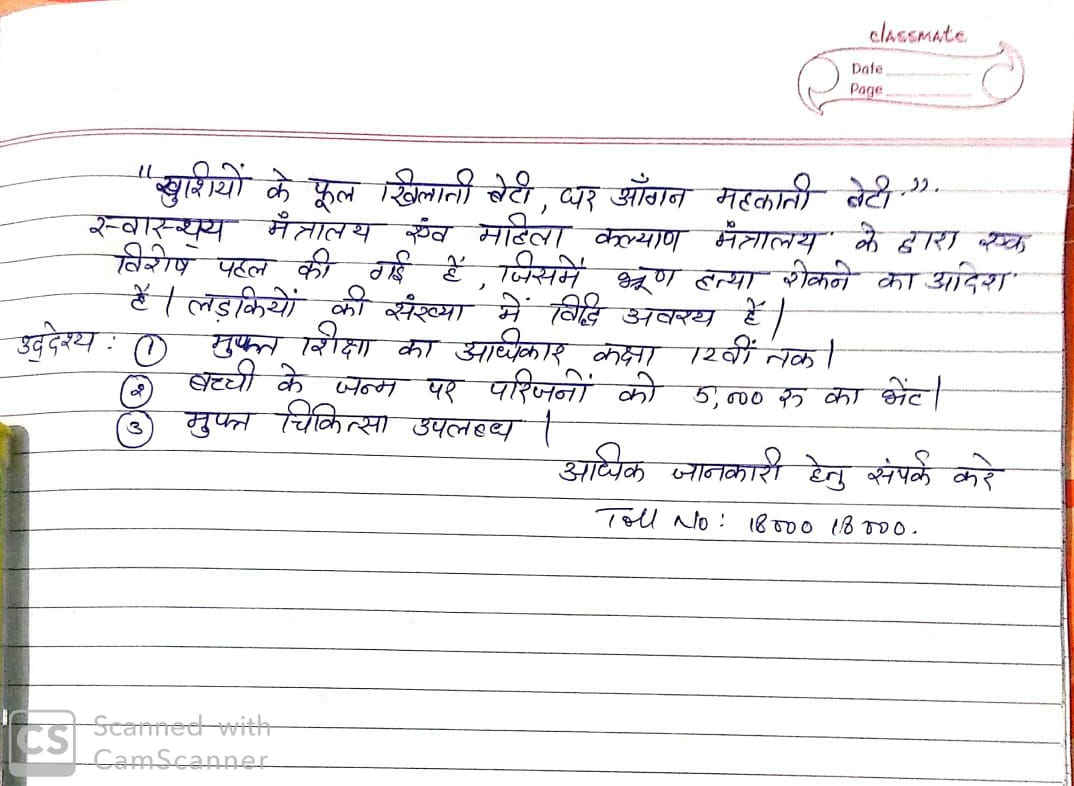 classmate
Date
Page
"खुशियों के फूल खिलाती बेटी, घर आँगन महकाती बेटी.".
स्वास्थ्य मंत्रालय एंव महिला कल्याण मंत्रालय के द्वारा एक
विशेष पहल की गई हैं, जिसमें भ्रूण हत्या रोकने का आदेश
है। लड़कियों की संख्या में विद्धि अवश्य हैं।
उद्देश्य : ① मुफ्त शिक्षा का अधिकार कक्षा 12वीं तक।
② बच्ची के जन्म पर परिजनों को 5,000 रु का भेंट।
③ मुफ्त चिकित्सा उपलब्ध ।
अधिक जानकारी हेतु संपर्क करे
Toll No: 18000 18000.
CS Scanned with
CamScanner